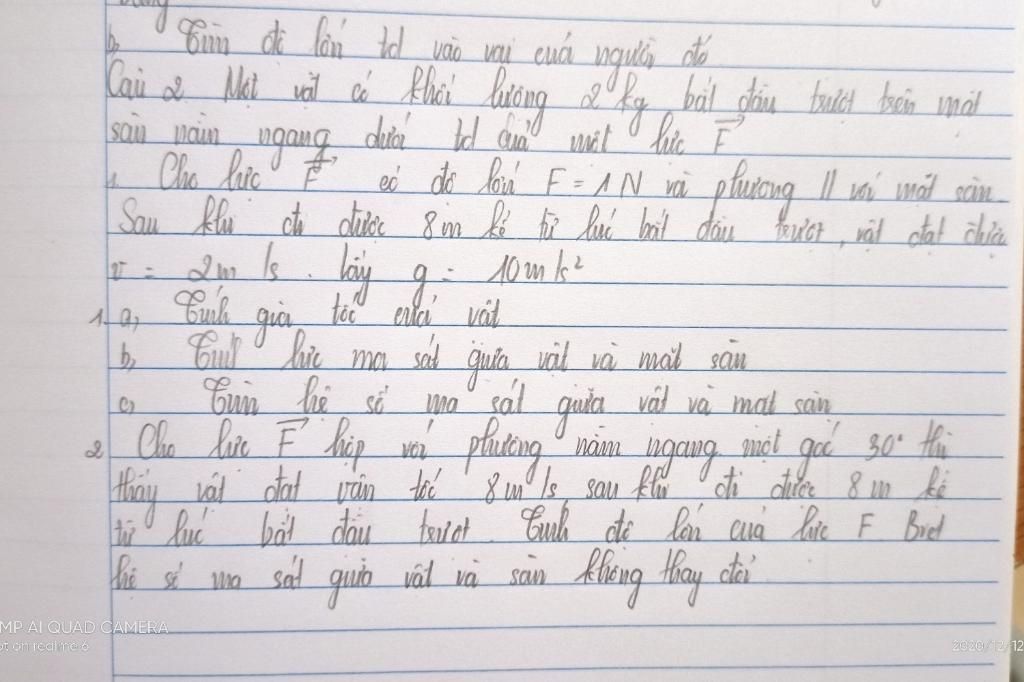 b, Tìm độ lớn td vào vai của người đó
Câu 2 Một vật có khối lượng 2kg, bắt đầu trượt trên mặt
sàn nằm ngang dưới td của một lực F
1. Cho lực F có độ lớn F = 1N và phương // với mặt sàn.
Sau khi đi được 8m kể từ lúc bắt đầu trượt, vật đạt được
v = 2m/s. lấy g = 10m/s²
1. a, Tính gia tốc của vật
b, Tính lực ma sát giữa vật và mặt sàn
c, Tìm hệ số ma sát giữa vật và mặt sàn
2 Cho lực F hợp với phương nằm ngang một góc 30° thì
thấy vật đạt vận tốc 8m/s, sau khi đi được 8m kể
từ lúc bắt đầu trượt. Tính độ lớn của lực F Biết
hệ số ma sát giữa vật và sàn không thay đổi
MP AI QUAD CAMERA
ot on realme 6
2020/12/12